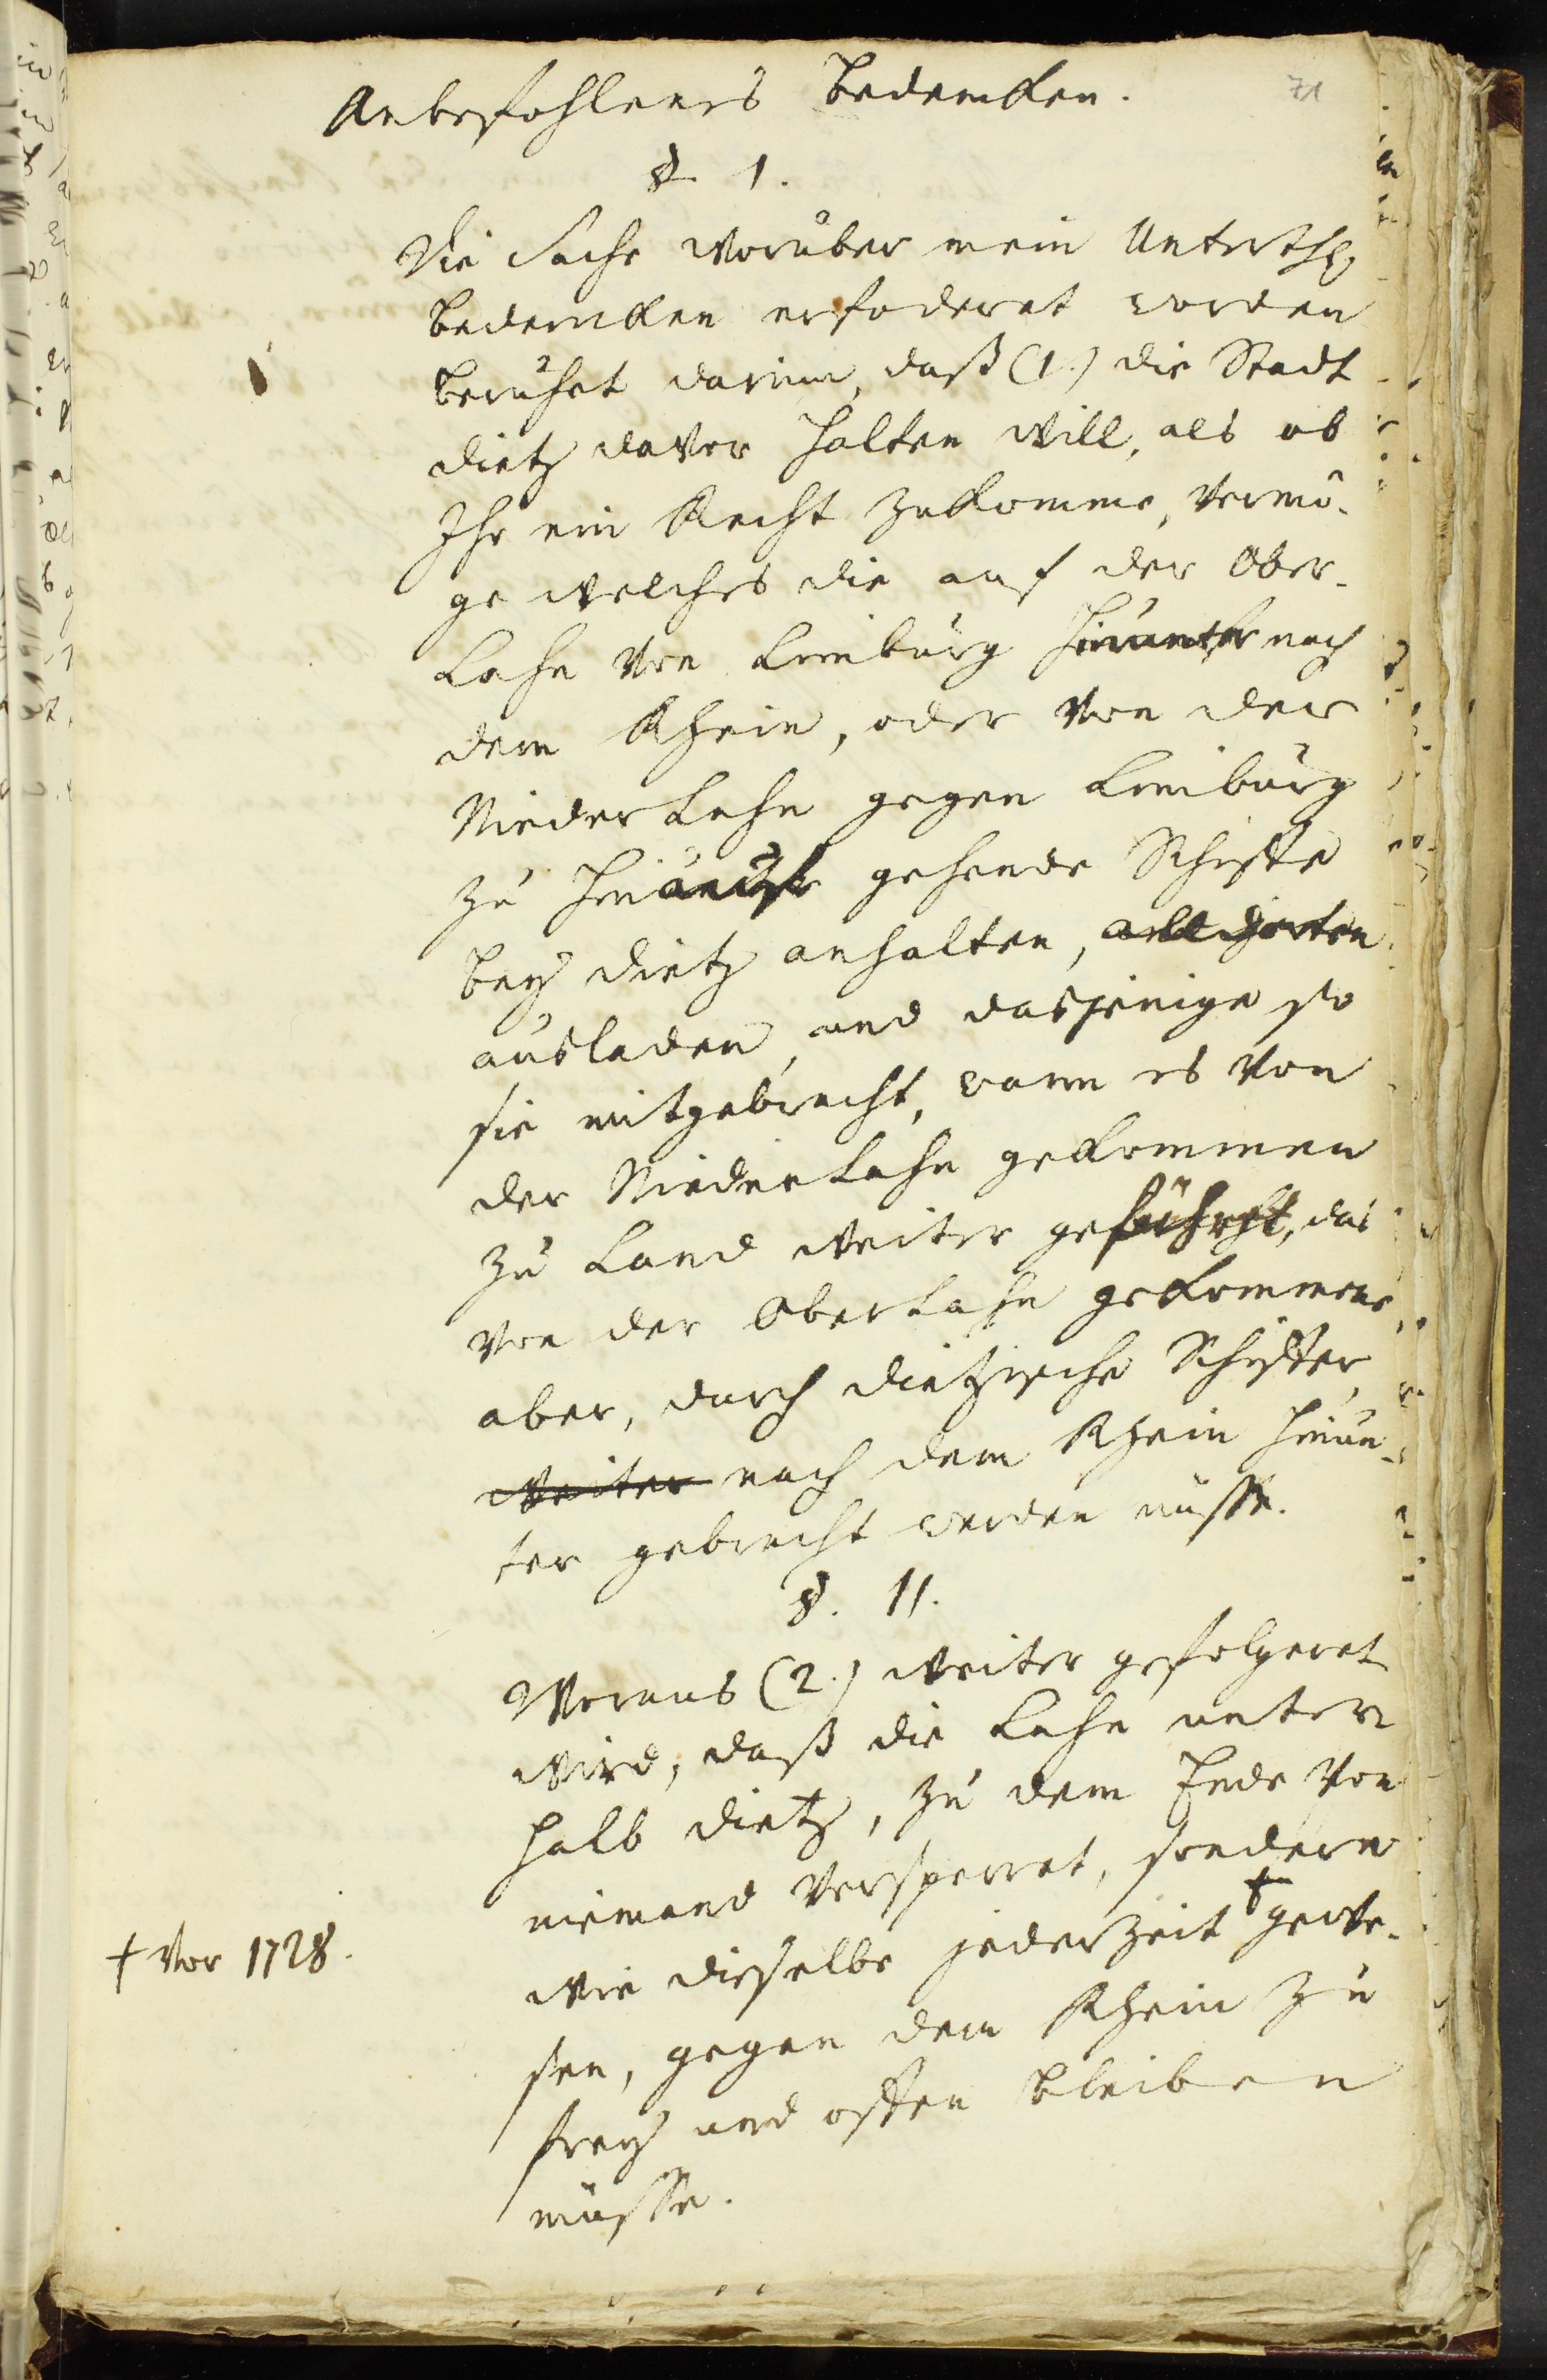 Anbefohlenes Bedencken.
71
§. 1.
Die Sache worüber mein Unterth.
Bedencken erfoderet worden
beruhet darinn, daß (1.) die Stadt
Dietz davor halten will, als ob
Ihr ein Recht zukomme, vermö-
ge welches die auf der Ober-
Lahn von Limburg hinunter nach
dem Rhein, oder von der
Nieder Lahn gegen Limburg
zu gehende Schiffe
bey Dietz anhalten, alldorten
ausladen, und dasjenige so
sie mitgebracht, wann es von
der Nieder Lahn gekommen
zu Land weiter geführt, das
von der Ober Lahn gekommene
aber, durch Dietzische Schiffer
weiter nach dem Rhein hinun-
ter gebracht werden müsse.
§. 11.
Woraus (2.) weiter gefolgeret
wird, daß die Lahn unter
halb Dietz, zu dem Ende von
niemand versperret, sondern
wie dieselbe jederzeit † gewe-
† vor 1728.
sen, gegen dem Rhein zu
frey und offen bleiben
müsse.